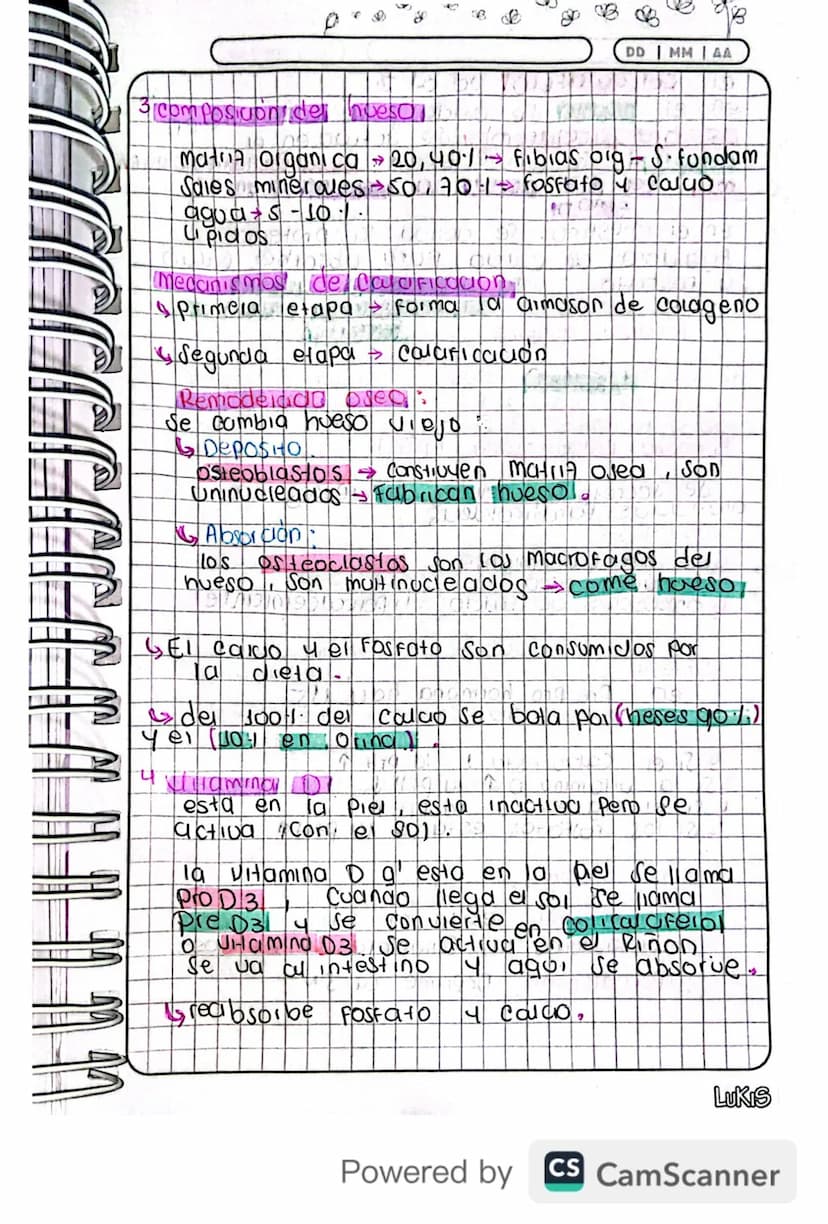 DD | MM | AA
3 composición del hueso
matriz organica → 20,40% → fibras org - S. fundam
Sales minerales → 50,70% → fosfato y calcio
agua → 5 - 10%.
Lipidos
Mecanismos de calcificacion
↳ primera etapa → forma la armason de colageno
↳ Segunda etapa → calcificación
Remodelado oseo:
Se cambia hueso viejo:
↳ Deposito
osteoblastos → construyen matriz osea, son
uninucleados → fabrican hueso.
↳ Absorción:
los osteoclastos son los macrofagos del
hueso, son multinucleados → come hueso,
↳ El calcio y el fosfato son consumidos por
la dieta.
↳ del 100% del calcio se bota por (heses 90%)
y el (10% en orina).
4 Vitamina D
esta en la piel, esta inactiva pero se
activa con el sol.
la vitamina D q' esta en la piel se llama
Pro D3, cuando llega el sol se llama
Pre D3 y se convierte en colicalciferol
o vitamina D3. Se activa en el Riñon
se va al intestino y aqui se absorve.
↳ reabsorbe fosfato y calcio.
LUKIS
Powered by CS CamScanner